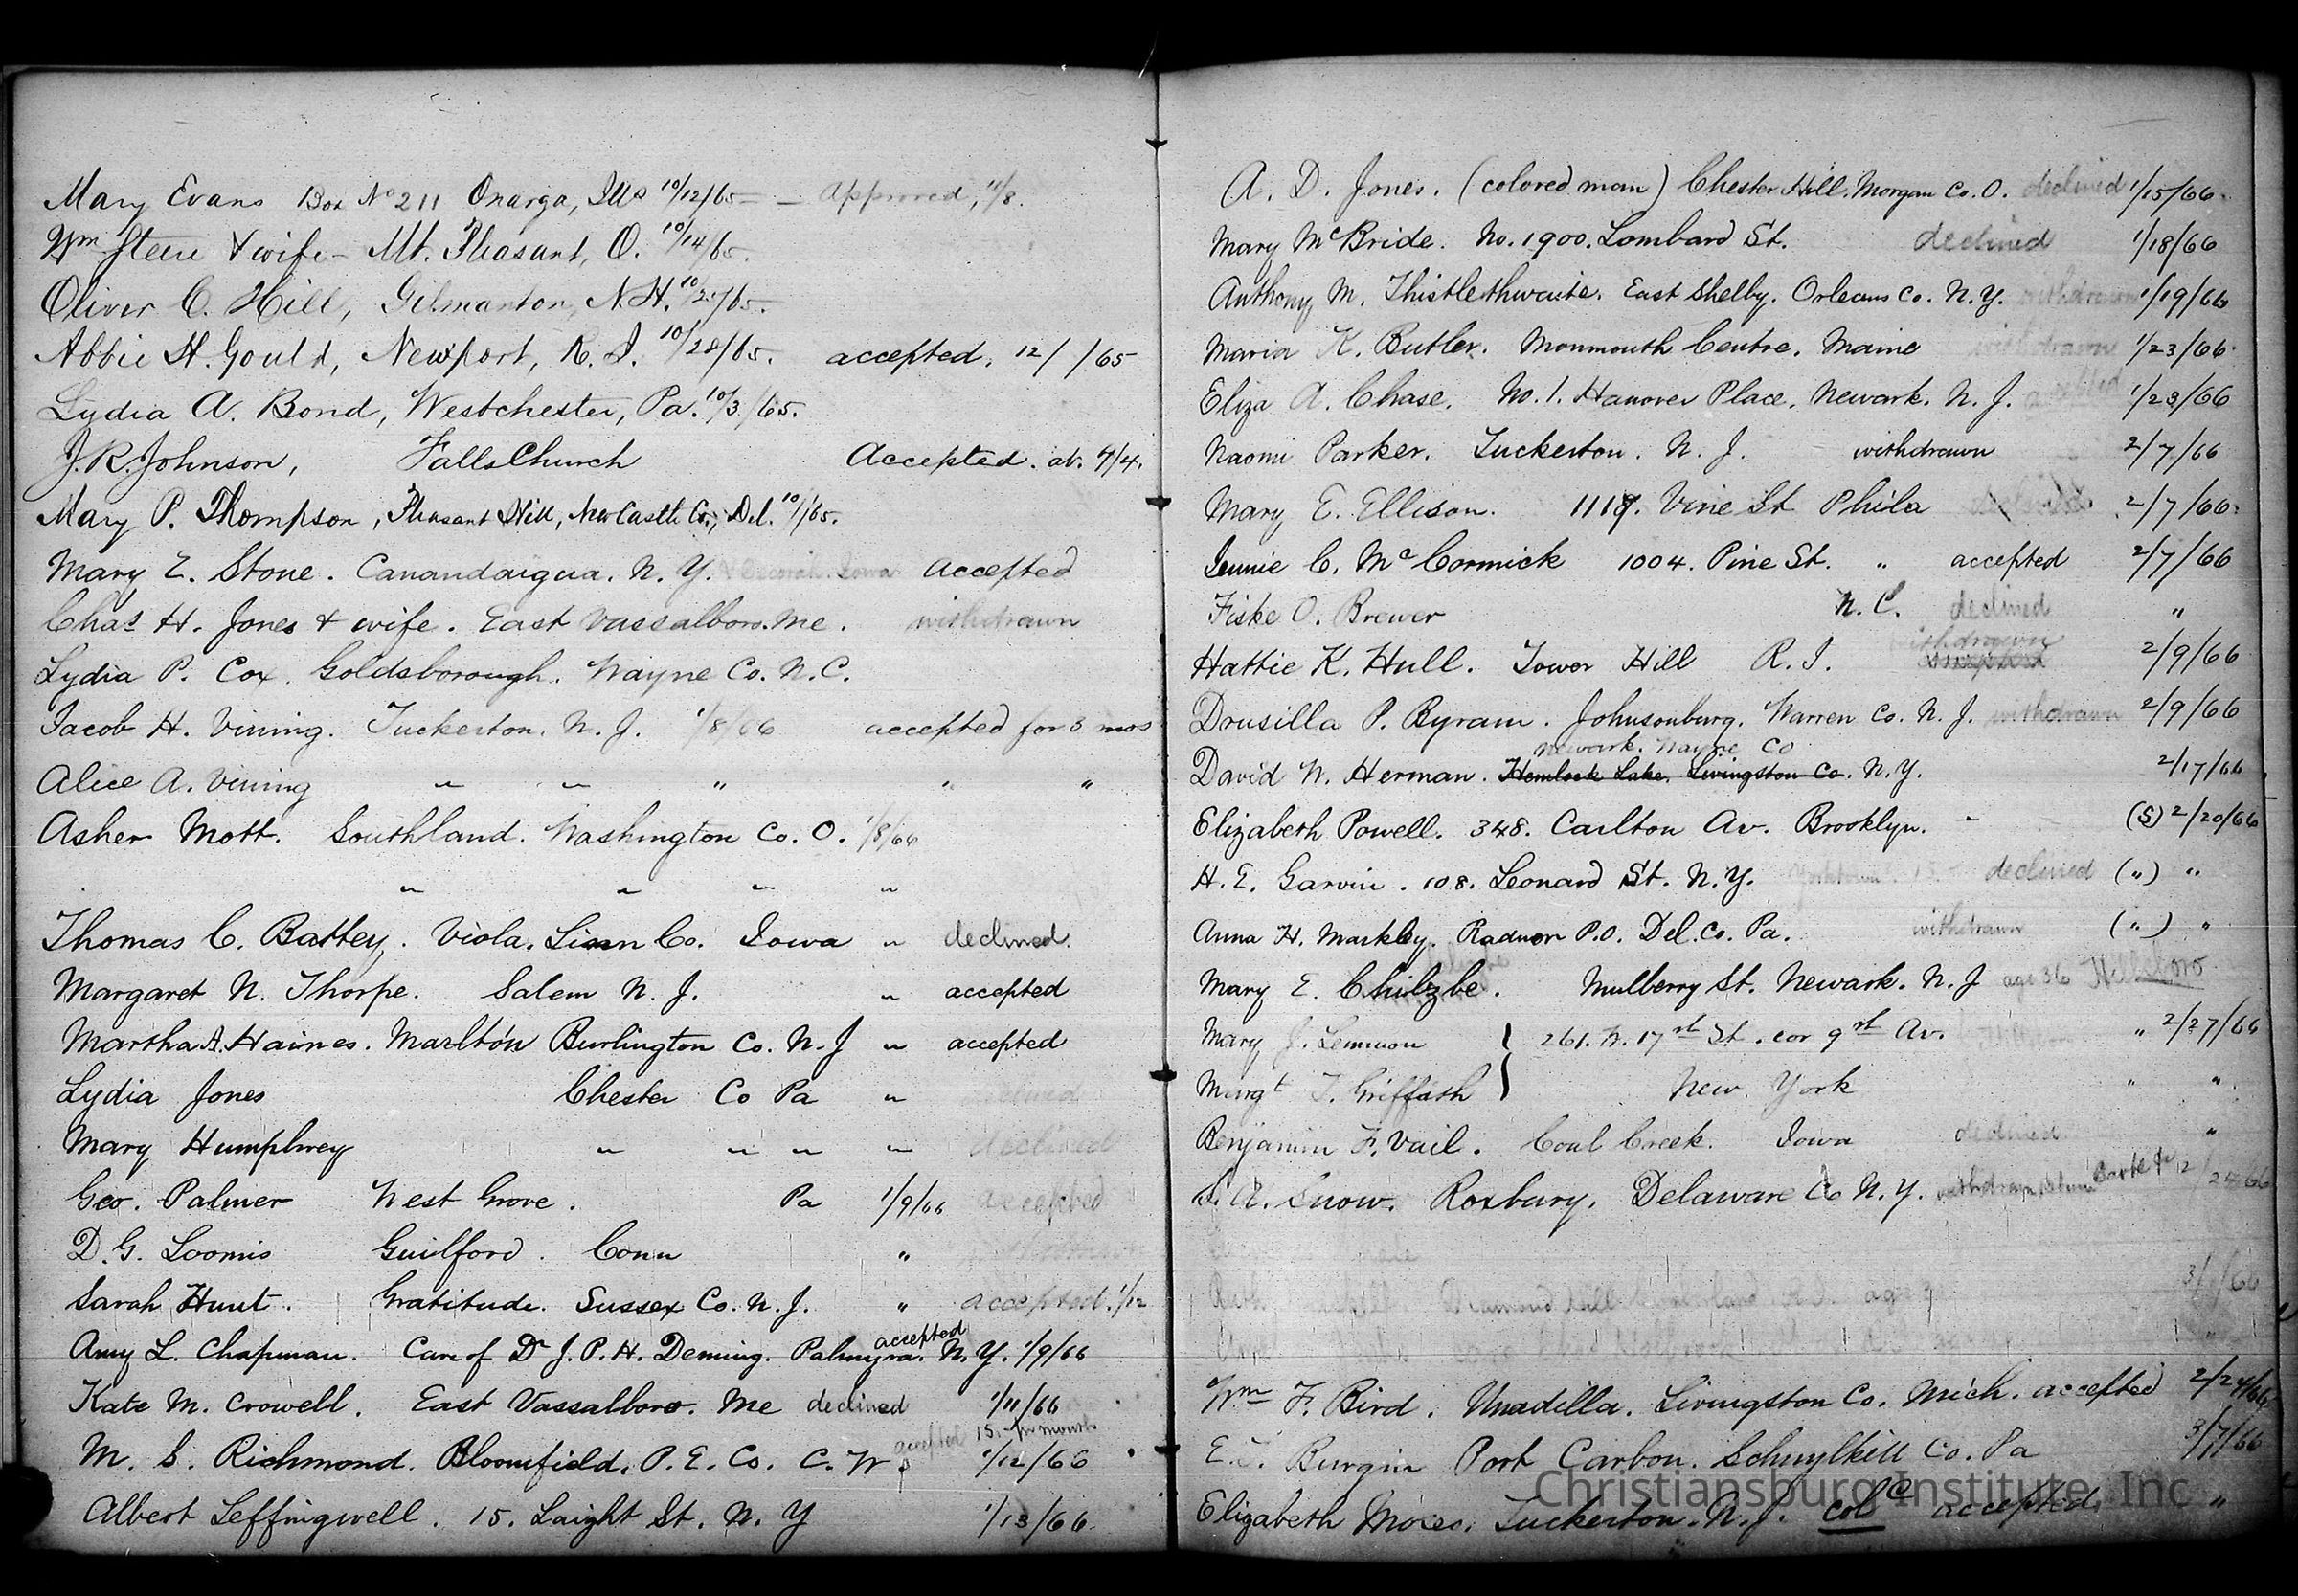 Mary Evans Box No 211 Onarga, Ills 10/12/65 — Approved, 11/8.
Wm Steere & wife - Mt. Pleasant, O. 10/14/65.
Oliver C. Hill, Gilmanton, N.H. 10/25/65.
Abbie H. Gould, Newport, R.I. 10/28/65. accepted. 12/ /65
Lydia A. Bond, Westchester, Pa. 10/3/65.
J. R. Johnson, Falls Church Accepted. ab. 4/4.
Mary P. Thompson, Pleasant Hill, New Castle Co., Del. 10/ /65.
Mary E. Stone. Canandaigua. N. Y. & Decorah. Iowa Accepted
Chas H. Jones & wife. East Vassalboro. Me. withdrawn
Lydia P. Cox. Goldsborough. Wayne Co. N.C.
Jacob H. Vining. Tuckerton. N. J. 1/8/66 accepted for 3 mos
Alice A. Vining " " " " "
Asher Mott. Southland. Washington Co. O. 1/8/66
" " " "
Thomas C. Battey. Viola. Linn Co. Iowa " declined.
Margaret N. Thorpe. Salem N. J. " accepted
Martha A. Haines. Marlton Burlington Co. N. J " accepted
Lydia Jones Chester Co Pa " declined
Mary Humphrey " " " " declined
Geo. Palmer West Grove. Pa 1/9/66 accepted
D. G. Loomis Guilford. Conn "
Sarah Hunt. Gratitude. Sussex Co. N. J. " accepted. 1/12
accepted
Amy L. Chapman. Care of Dr J. P. H. Deming. Palmyra. N. Y. 1/9/66
Kate M. Crowell. East Vassalboro. Me declined 1/11/66
accepted 15. - pr month
M. S. Richmond. Bloomfield. P. E. Co. C. W. 1/12/66
Albert Leffingwell. 15. Laight St. N. Y 1/13/66.
A. D. Jones. (colored man) Chester Hill. Morgan Co. O. declined 1/15/66.
Mary McBride. No. 1900. Lombard St. declined 1/18/66
Anthony M. Thistlethwaite. East Shelby. Orleans Co. N. Y. withdrawn 1/19/66
Maria K. Butler. Monmouth Centre. Maine withdrawn 1/23/66.
Eliza A. Chase. No. 1. Hanover Place. Newark. N. J. accepted 1/23/66
Naomi Parker. Tuckerton. N. J. withdrawn 2/7/66
Mary E. Ellison. 1119. Vine St Phila 2/7/66.
Jennie C. McCormick 1004. Pine St. " accepted 2/7/66
Fiske O. Brewer N. C. declined "
withdrawn
Hattie K. Hull. Tower Hill R. I. 2/9/66
Drusilla P. Byram. Johnsonburg. Warren Co. N. J. withdrawn 2/9/66
Newark. Wayne Co
David W. Herman. Hemlock Lake. Livingston Co. N.Y. 2/17/66
Elizabeth Powell. 348. Carlton Av. Brooklyn. (S) 2/20/66
H. E. Garvin. 108. Leonard St. N.Y. declined (") "
Anna H. Markley. Radnor P.O. Del. Co. Pa. withdrawn (") "
Mary E. Mulberry St. Newark. N. J age 36
Mary J. Lemmon } 261. W. 17st St. cor 9st Av. " 2/27/66
Margt T. Griffith } New York " "
Benjamin F. Vail. Coal Creek. Iowa declined "
S. A. Snow. Roxbury. Delaware Co N. Y. withdrawn
Diamond Hill R. I. age 3/ /66
Wm F. Bird. Unadilla. Livingston Co. Mich. accepted 2/24/66
Burgin Port Carbon. Schuylkill Co. Pa 3/7/66
Elizabeth Moses. Tuckerton. N. J. col accepted. "
Christiansburg Institute, Inc